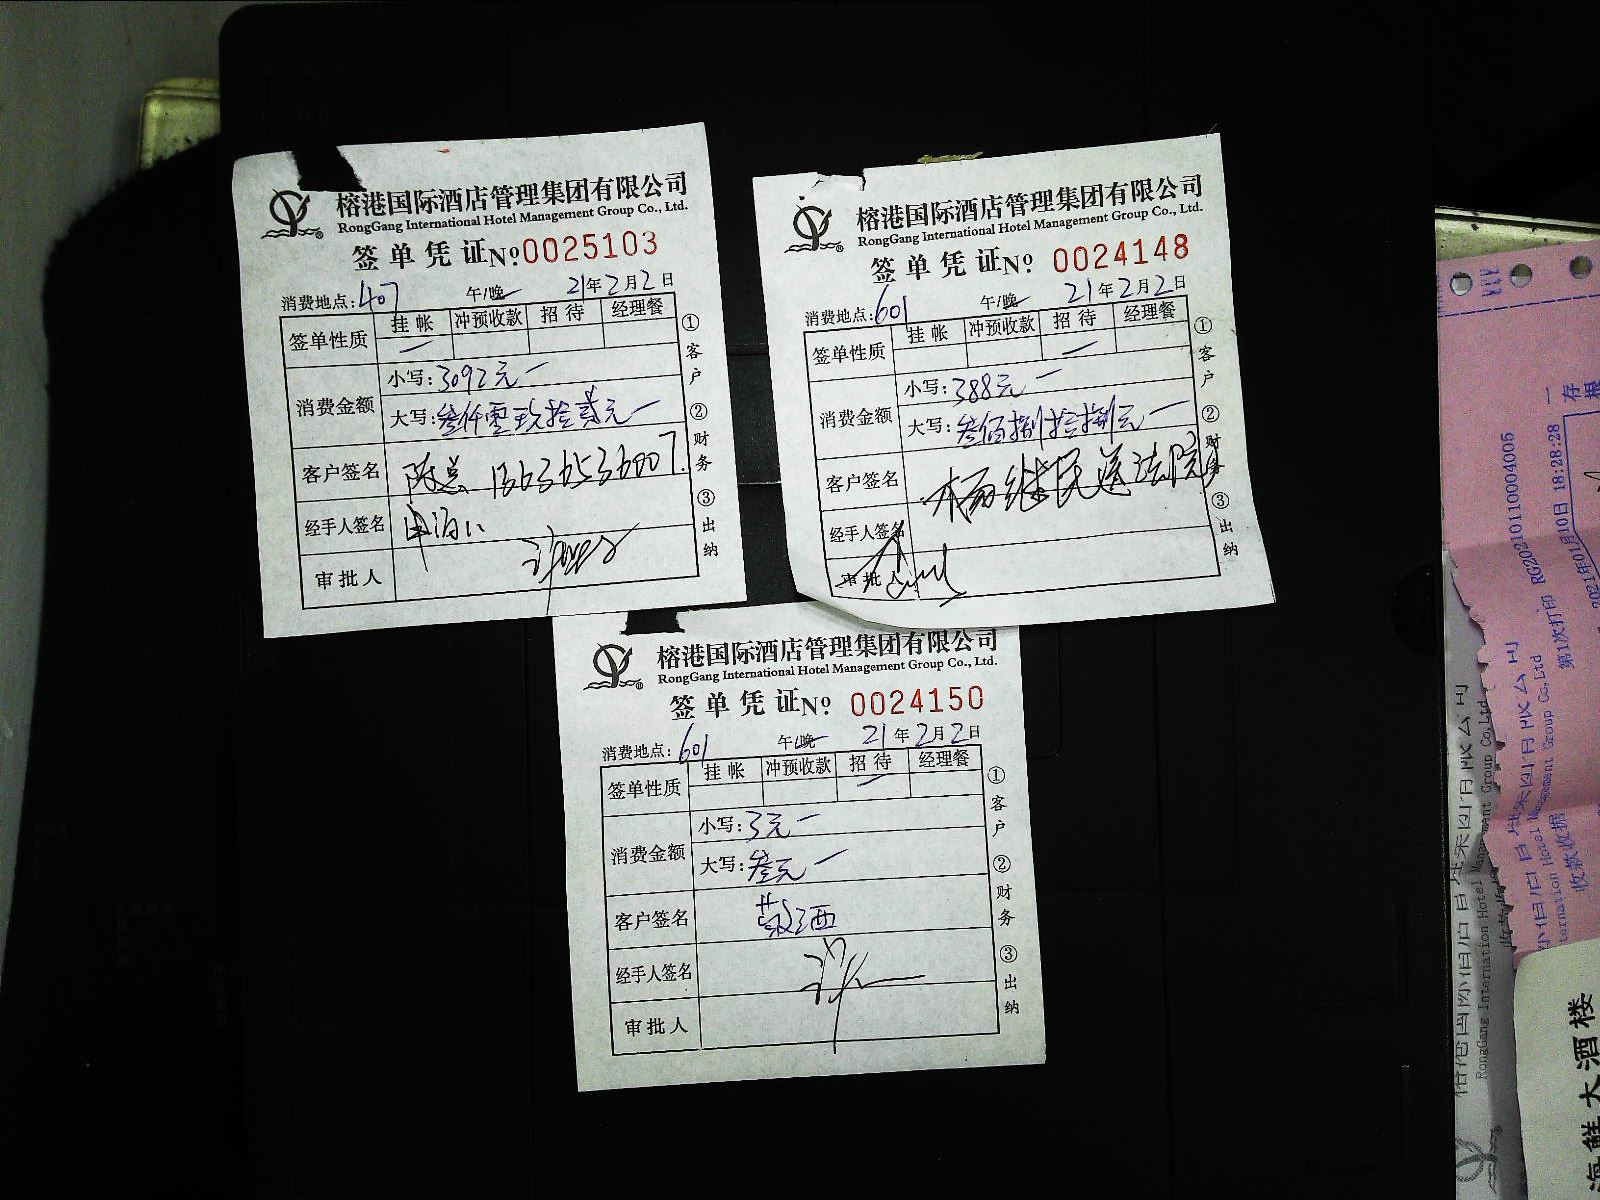 榕港国际酒店管理集团有限公司
RongGang International Hotel Management Group Co., Ltd.
签单凭证 Nº 0025103
消费地点: 407 午/晚 21年2月2日
签单性质 挂帐 冲预收款 招待 经理餐
消费金额
小写: 3092元
大写: 叁仟零玖拾贰元
客户签名 陈总
经手人签名
审批人
①客户 ②财务 ③出纳
榕港国际酒店管理集团有限公司
RongGang International Hotel Management Group Co., Ltd.
签单凭证 Nº 0024148
消费地点: 601 午/晚 21年2月2日
签单性质 挂帐 冲预收款 招待 经理餐
消费金额
小写: 388元
大写: 叁佰捌拾捌元
客户签名 杨继民送法院
经手人签名
审批人
①客户 ②财务 ③出纳
榕港国际酒店管理集团有限公司
RongGang International Hotel Management Group Co., Ltd.
签单凭证 Nº 0024150
消费地点: 601 午/晚 21年2月2日
签单性质 挂帐 冲预收款 招待 经理餐
消费金额
小写: 3元
大写: 叁元
客户签名 敬酒
经手人签名
审批人
①客户 ②财务 ③出纳
存根
2021年01月10日 18:28:28
第1次打印 RG202101110004005
International Hotel Management Group Co,Ltd
收款收据
RongGang International Hotel Management Group Co,Ltd
海鲜大酒楼